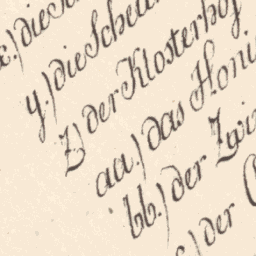 x.) die
y.) die Scheu
z.) der Klosterhof
aa.) das Honi
bb.) der Zwi
der